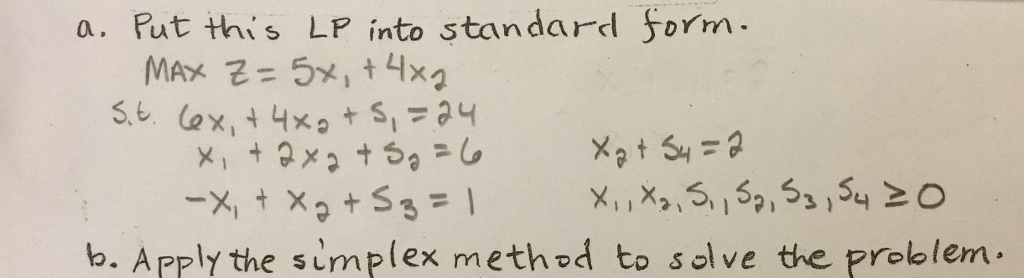 a. Put this LP into standard form.
MAX Z = 5x₁ + 4x₂
S.t. 6x₁ + 4x₂ + S₁ = 24
x₁ + 2x₂ + S₂ = 6
x₂ + S₄ = 2
-x₁ + x₂ + S₃ = 1
x₁, x₂, S₁, S₂, S₃, S₄ ≥ 0
b. Apply the simplex method to solve the problem.